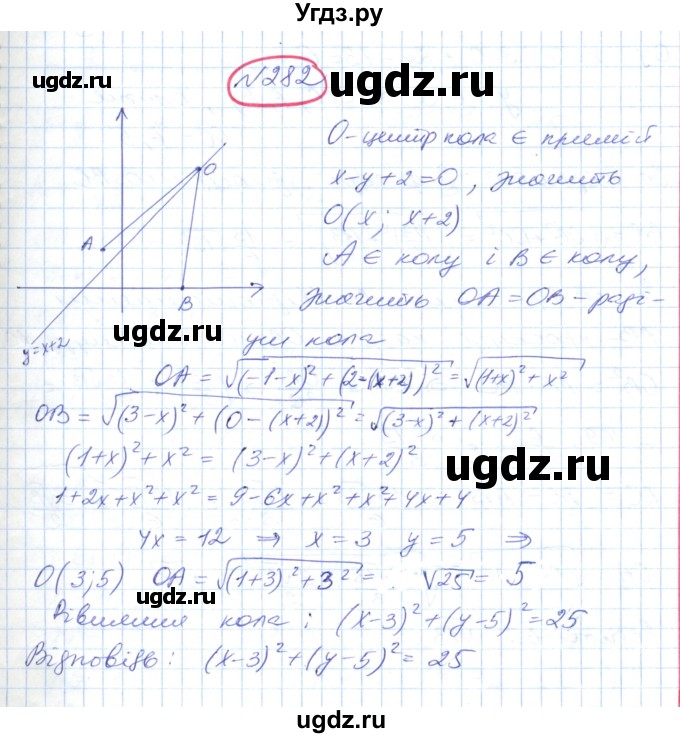 Угдз.ру
ugdz.ru
№282
ugdz.ru
О-центр кола ∈ прямій
x-y+2=0, значить
O(x; x+2)
A ∈ колу і B ∈ колу,
значить OA=OB-раді-
уси кола
O
A
B
y=x+2
ugdz.ru
OA = √((-1-x)²+(2-(x+2))²) = √((1+x)²+x²)
OB = √((3-x)²+(0-(x+2)²) = √((3-x)²+(x+2)²)
(1+x)²+x² = (3-x)²+(x+2)²
ugdz.ru
1+2x+x²+x² = 9-6x+x²+x²+4x+4
4x=12 ⇒ x=3 y=5 ⇒
O(3;5) OA = √((1+3)²+3²) = √25 = 5
ugdz.ru
Рівняння кола: (x-3)²+(y-5)²=25
Відповідь: (x-3)²+(y-5)²=25
ugdz.ru
ugdz.ru
ugdz.ru